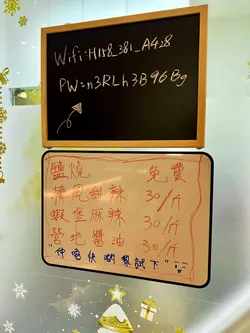 Wifi:H1r8_381_A428
PW=n3RLh3B96Bg
鹽燒 免費
精風甜辣 30/斤
蝦堡麻辣 30/斤
營地醬油 30/斤
"仲唔快啲嚟試下"